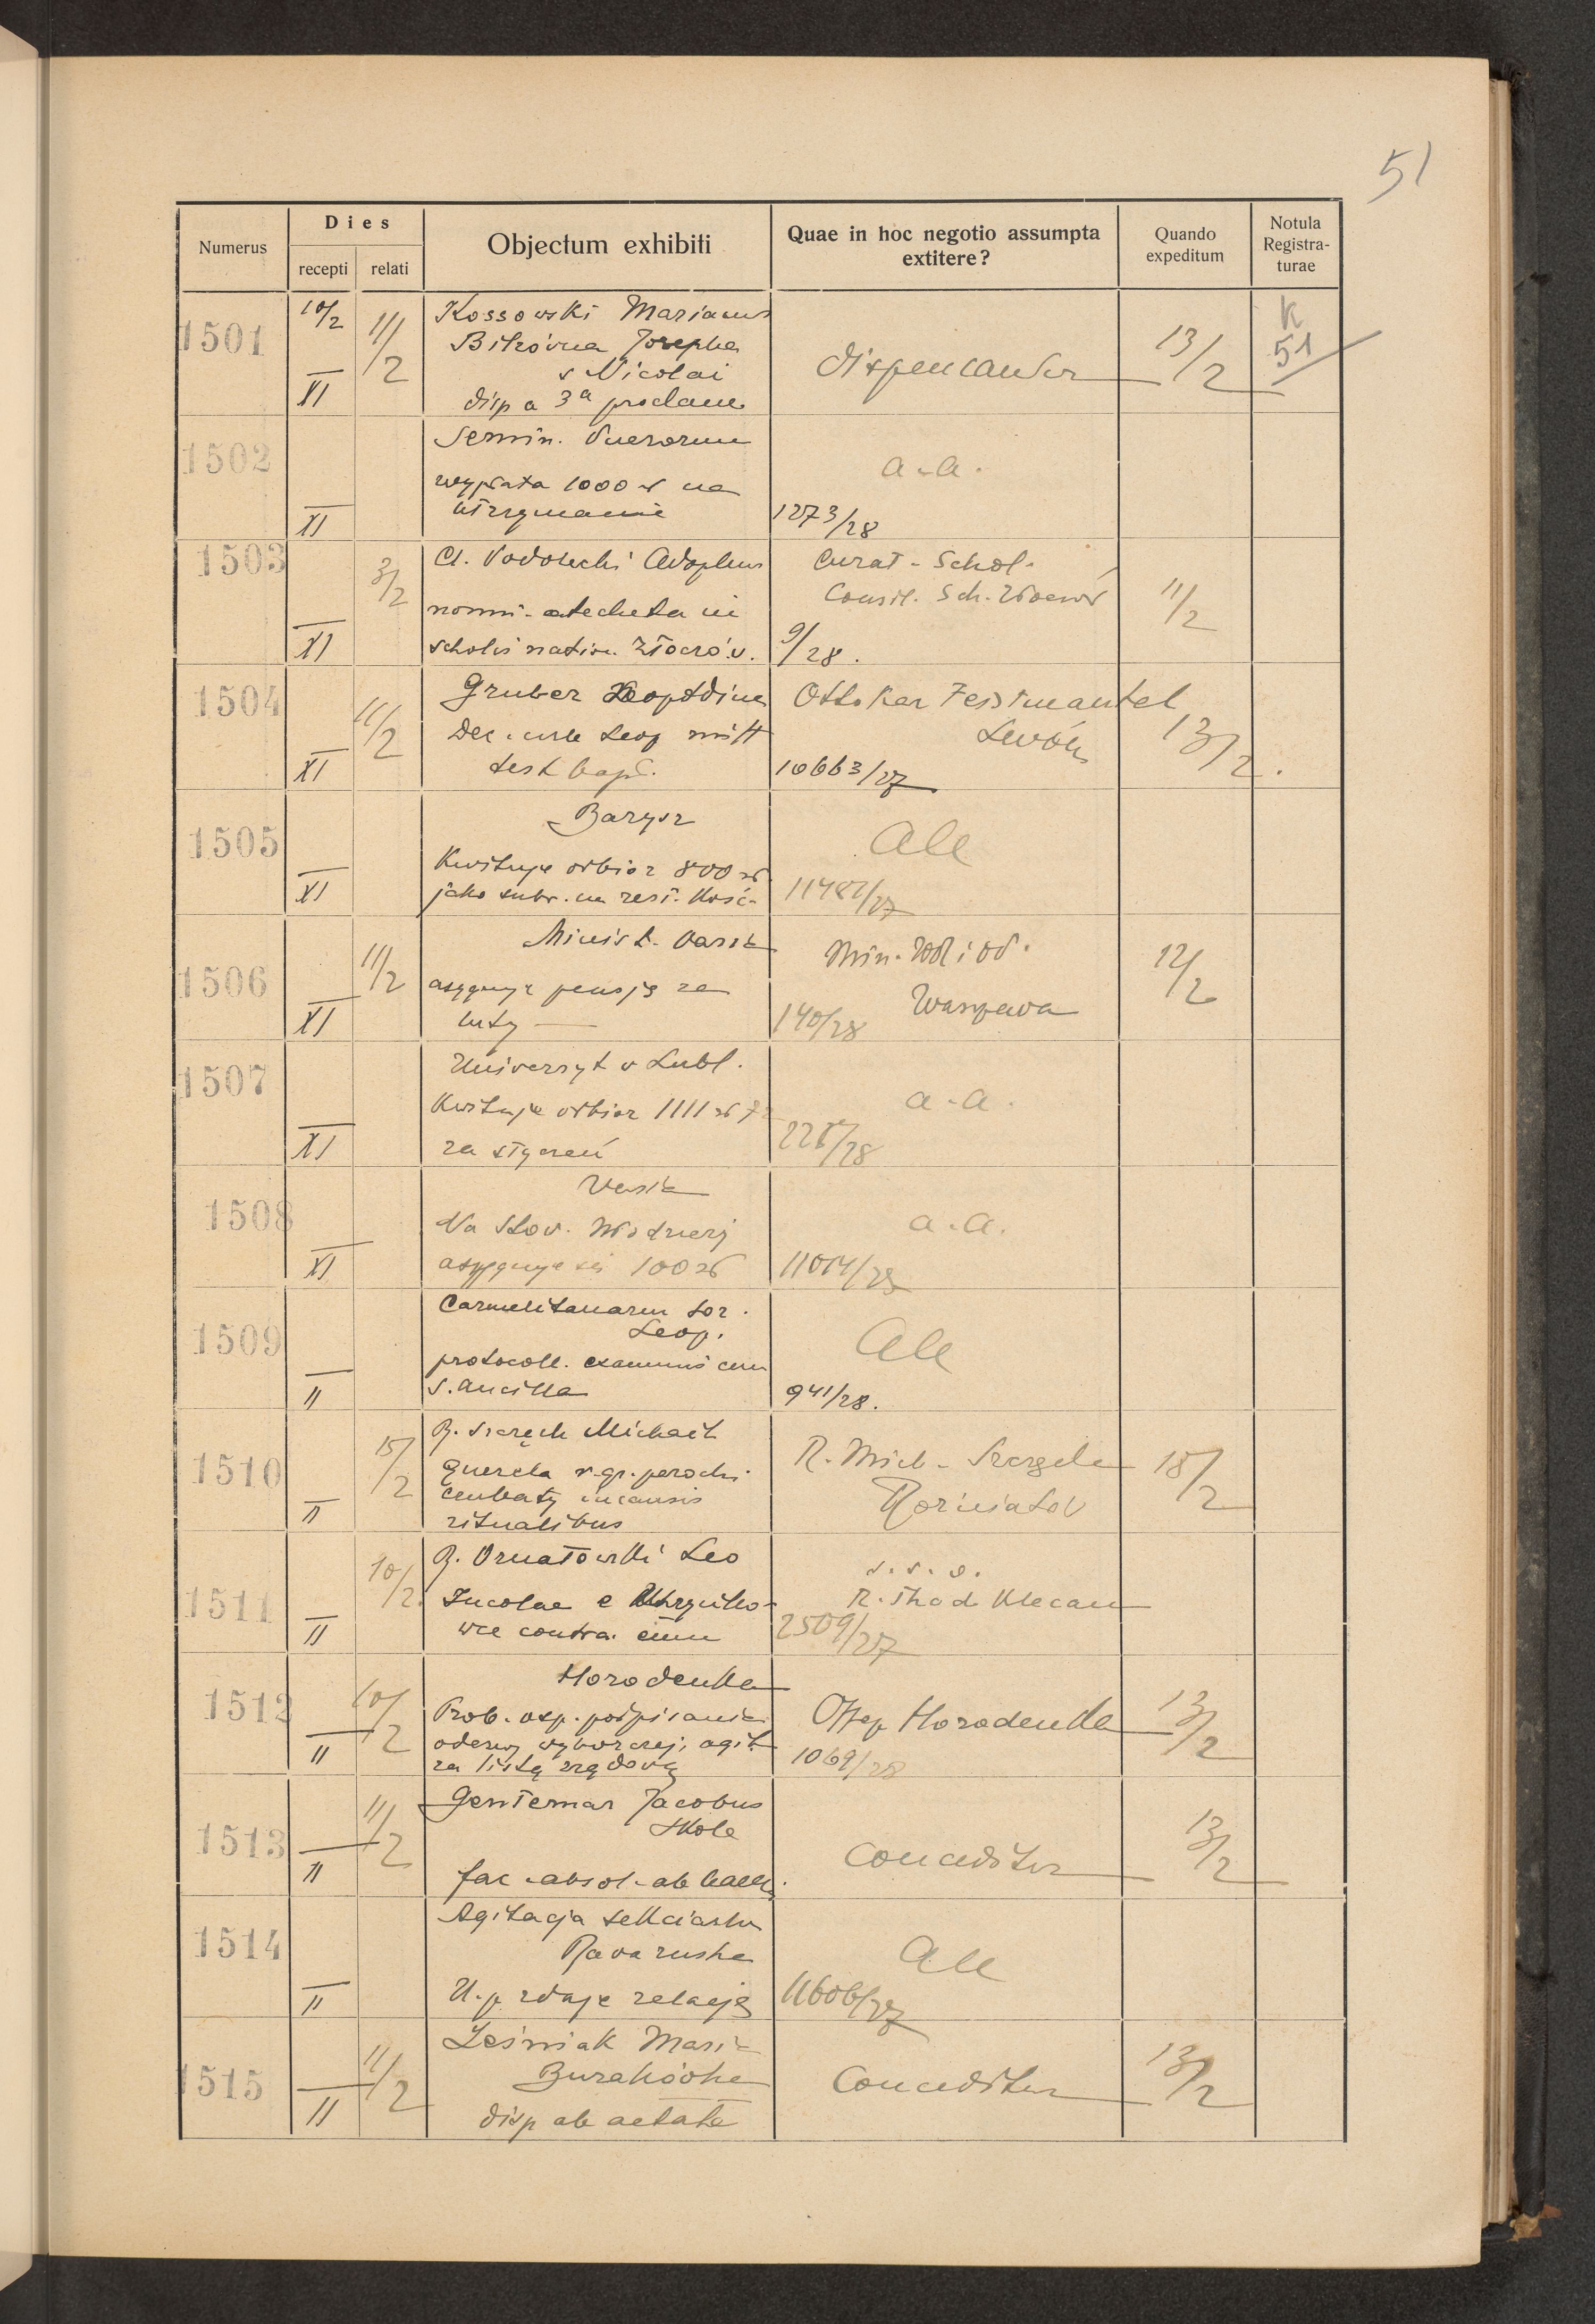 51
Numerus
Dies
recepti relati
Objectum exhibiti
Quae in hoc negotio assumpta
extitere?
Quando
expeditum
Notula
Registra-
turae
1501
10/2
XI
11/2
Kossowski Marianus
Bilzówna Josepha
s Nicolai
disp a 3a proclam
dispensantur
13/2
K
51
1502
XI
Semin. Puerorum
wypłata 1000 zł na
utrzymanie
a.a.
1273/28
1503
XI
3/2
Cl. Podolecki Adolphus
nomin. catecheta in
scholis nation. Złoczów.
Curat. Schol.
Consil. Sch.
9/28.
11/2
1504
XI
11/2
Gruber Leopoldina
Dec. urb Leop mitt
test bapt.
Ottokar Feistmantel
Lwów
10663/27
13/2.
1505
XI
Barysz
Kwituje odbiór 800 zł
jako subw. na rest. kość.
Ale
11482/27
1506
XI
11/2
Minist. Varsz
asygnuje pensję za
luty
Min. WR i OP.
Warszawa
140/28
12/2
1507
XI
Uniwersyt w Lubl.
Kwituje odbiór 1111 zł
za styczeń
a.a.
225/28
1508
XI
Na Stow.
asygnuje się 100 zł
a.a.
1509
II
Carmelitanarum sor.
Leop.
protocoll. examinis cum
s. ancilla
Ale
941/28.
1510
II
15/2
R. Szczęch Michaël
querela v. gr. parochi
in causis
ritualibus
R. Mich. Szczęch
Rozniatów
18/2
1511
II
10/2
R. Ornatowski Leo
Incolae e
wce contra eum
s.s.o.
R. Thad Klecan
2509/27
1512
II
10/2
Horodenka
Prob. usp. podpisanie
odezwy wyborczej, agit.
za listą rządową
Off Horodenka
1069/28
13/2
1513
II
11/2
Jacobus
Skole
fac. absol. ab haer.
Conceditur
13/2
1514
II
Agitacja sekciarska
Rava ruska
U.p. zdaje relację
Ale
11606/27
1515
II
11/2
Leśniak Maria
Burakówka
disp ab aetate
Conceditur
13/2